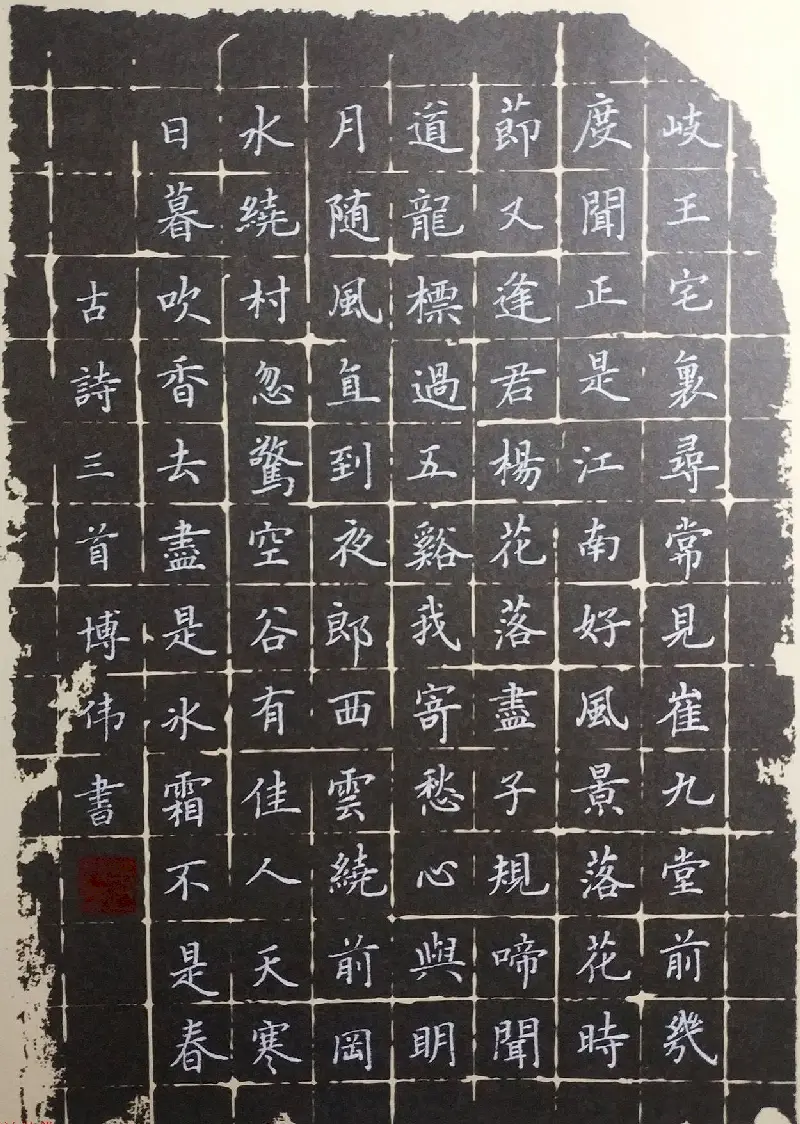 岐王宅裏尋常見崔九堂前幾
度聞正是江南好風景落花時
莭又逢君楊花落盡子規啼聞
道龍標過五谿我寄愁心與明
月随風直到夜郎西雲繞前岡
水繞村忽驚空谷有佳人天寒
日暮吹香去盡是冰霜不是春
古詩三首博伟書